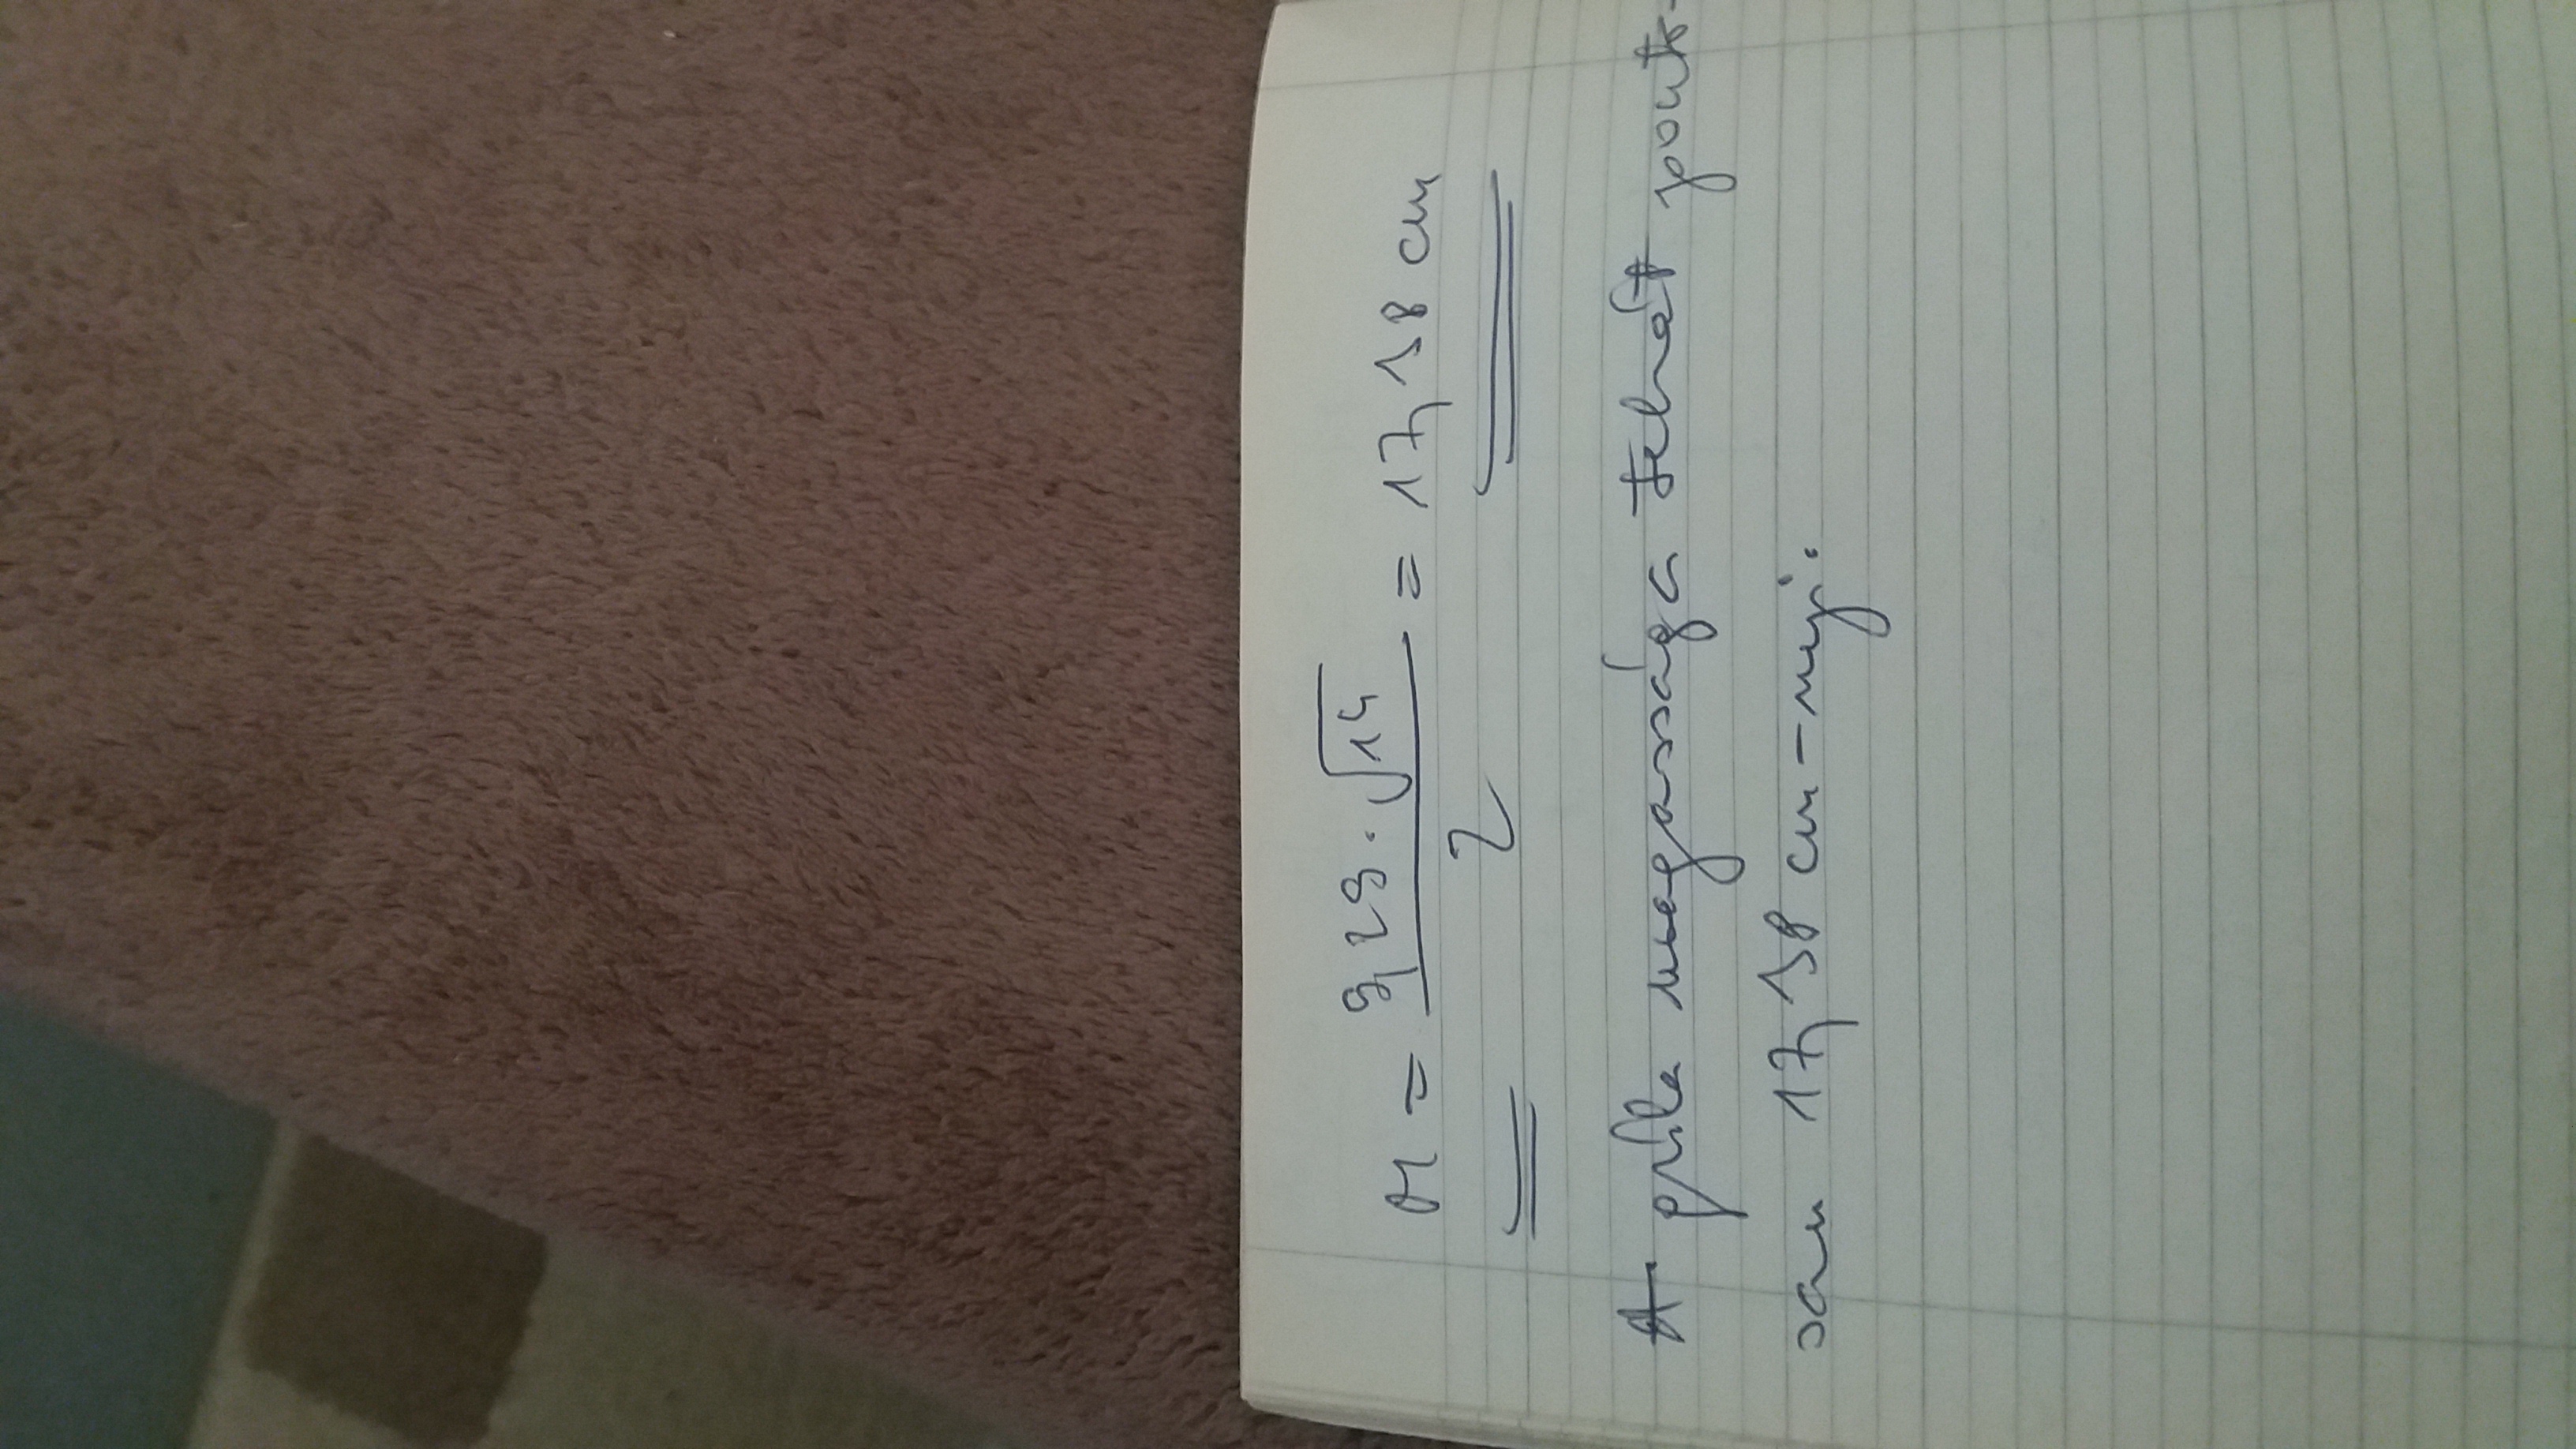 M = 9,29·√14 / 2 = 17,38 cm
A gúla magassága tehát ponto-
san 17,38 cm-nyi.